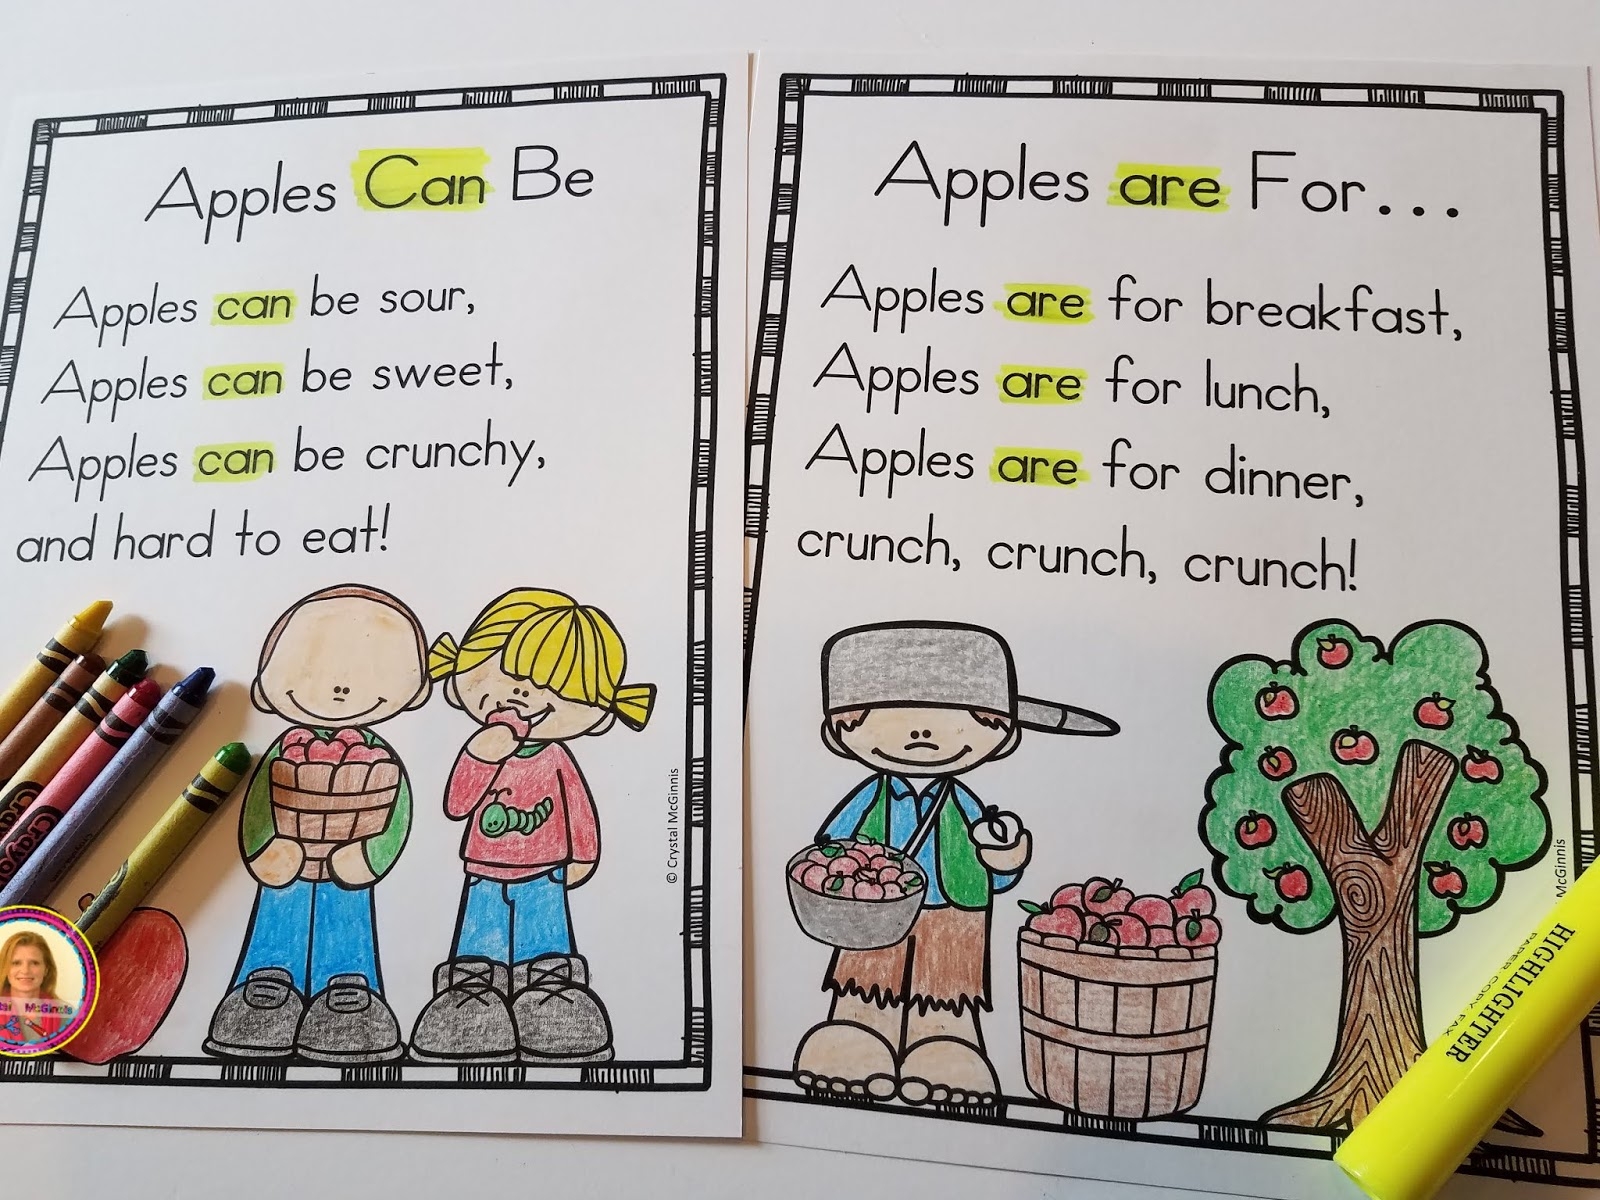 Apples Can Be
Apples can be sour,
Apples can be sweet,
Apples can be crunchy,
and hard to eat!
© Crystal McGinnis
Apples are For...
Apples are for breakfast,
Apples are for lunch,
Apples are for dinner,
crunch, crunch, crunch!
McGinnis
HIGHLIGHTER
PAPER·COPY·FAX
McGinnis